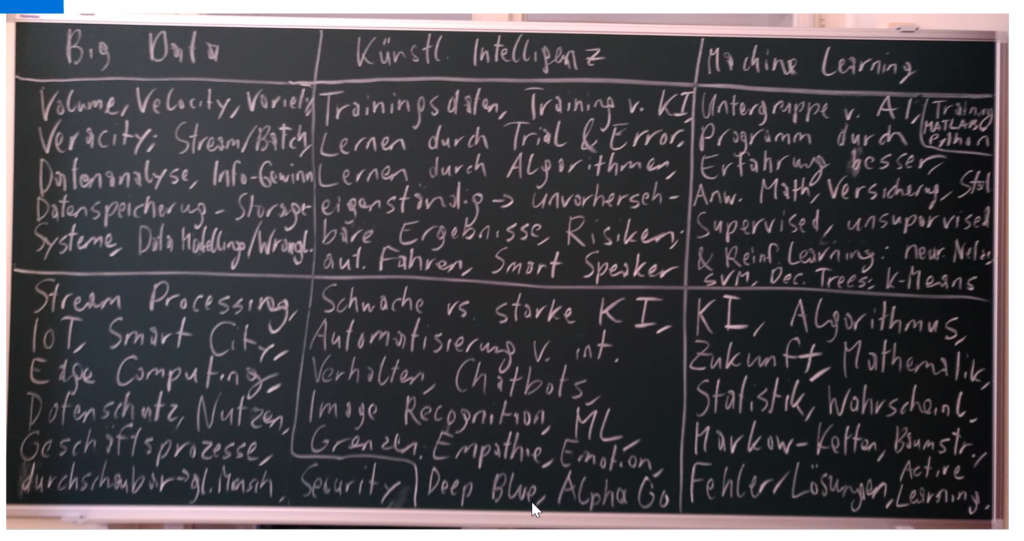 Big Data
Volume, Velocity, Variety,
Veracity; Stream/Batch
Datenanalyse, Info-Gewinn
Datenspeicherug - Storage
Systeme, Data Modelling/Wrangl.
Künstl. Intelligenz
Trainingsdaten, Training v. KI
Lernen durch Trial & Error,
Lernen durch Algorithmen,
eigenständig → unvorherseh-
bare Ergebnisse, Risiken;
aut. Fahren, Smart Speaker
Machine Learning
Untergruppe v. AI,
Training
MATLAB
Python
Programm durch
Erfahrung besser,
Anw. Math, Versicherg, Stat
Supervised, unsupervised
& Reinf. Learning: neur. Netze,
SVM, Dec. Trees, K-Means
Stream Processing,
IoT, Smart City,
Edge Computing,
Datenschutz, Nutzen,
Geschäftsprozesse,
durchschaubar → gl. Mensch, Security
Schwache vs. starke KI,
Automatisierung v. int.
Verhalten, Chatbots,
Image Recognition, ML,
Grenzen: Empathie, Emotion,
Deep Blue, Alpha Go
KI, Algorithmus,
Zukunft, Mathematik,
Statistik, Wahrscheinl.
Markow-Ketten, Baumstr.,
Fehler/Lösungen, Active
Learning.